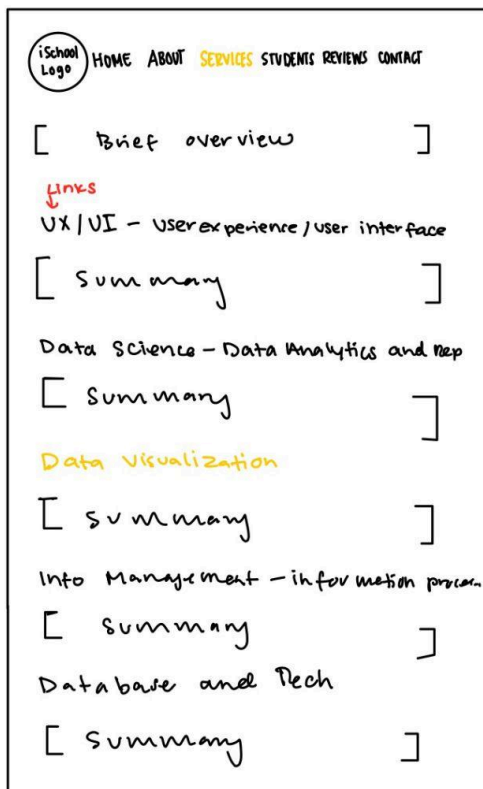 iSchool
Logo
HOME ABOUT SERVICES STUDENTS REVIEWS CONTACT
[ Brief overview ]
Links
UX/UI - User experience/user interface
[ Summary ]
Data Science - Data Analytics and Rep
[ Summary ]
Data Visualization
[ Summary ]
Info Management - information
[ Summary ]
Database and Tech
[ Summary ]